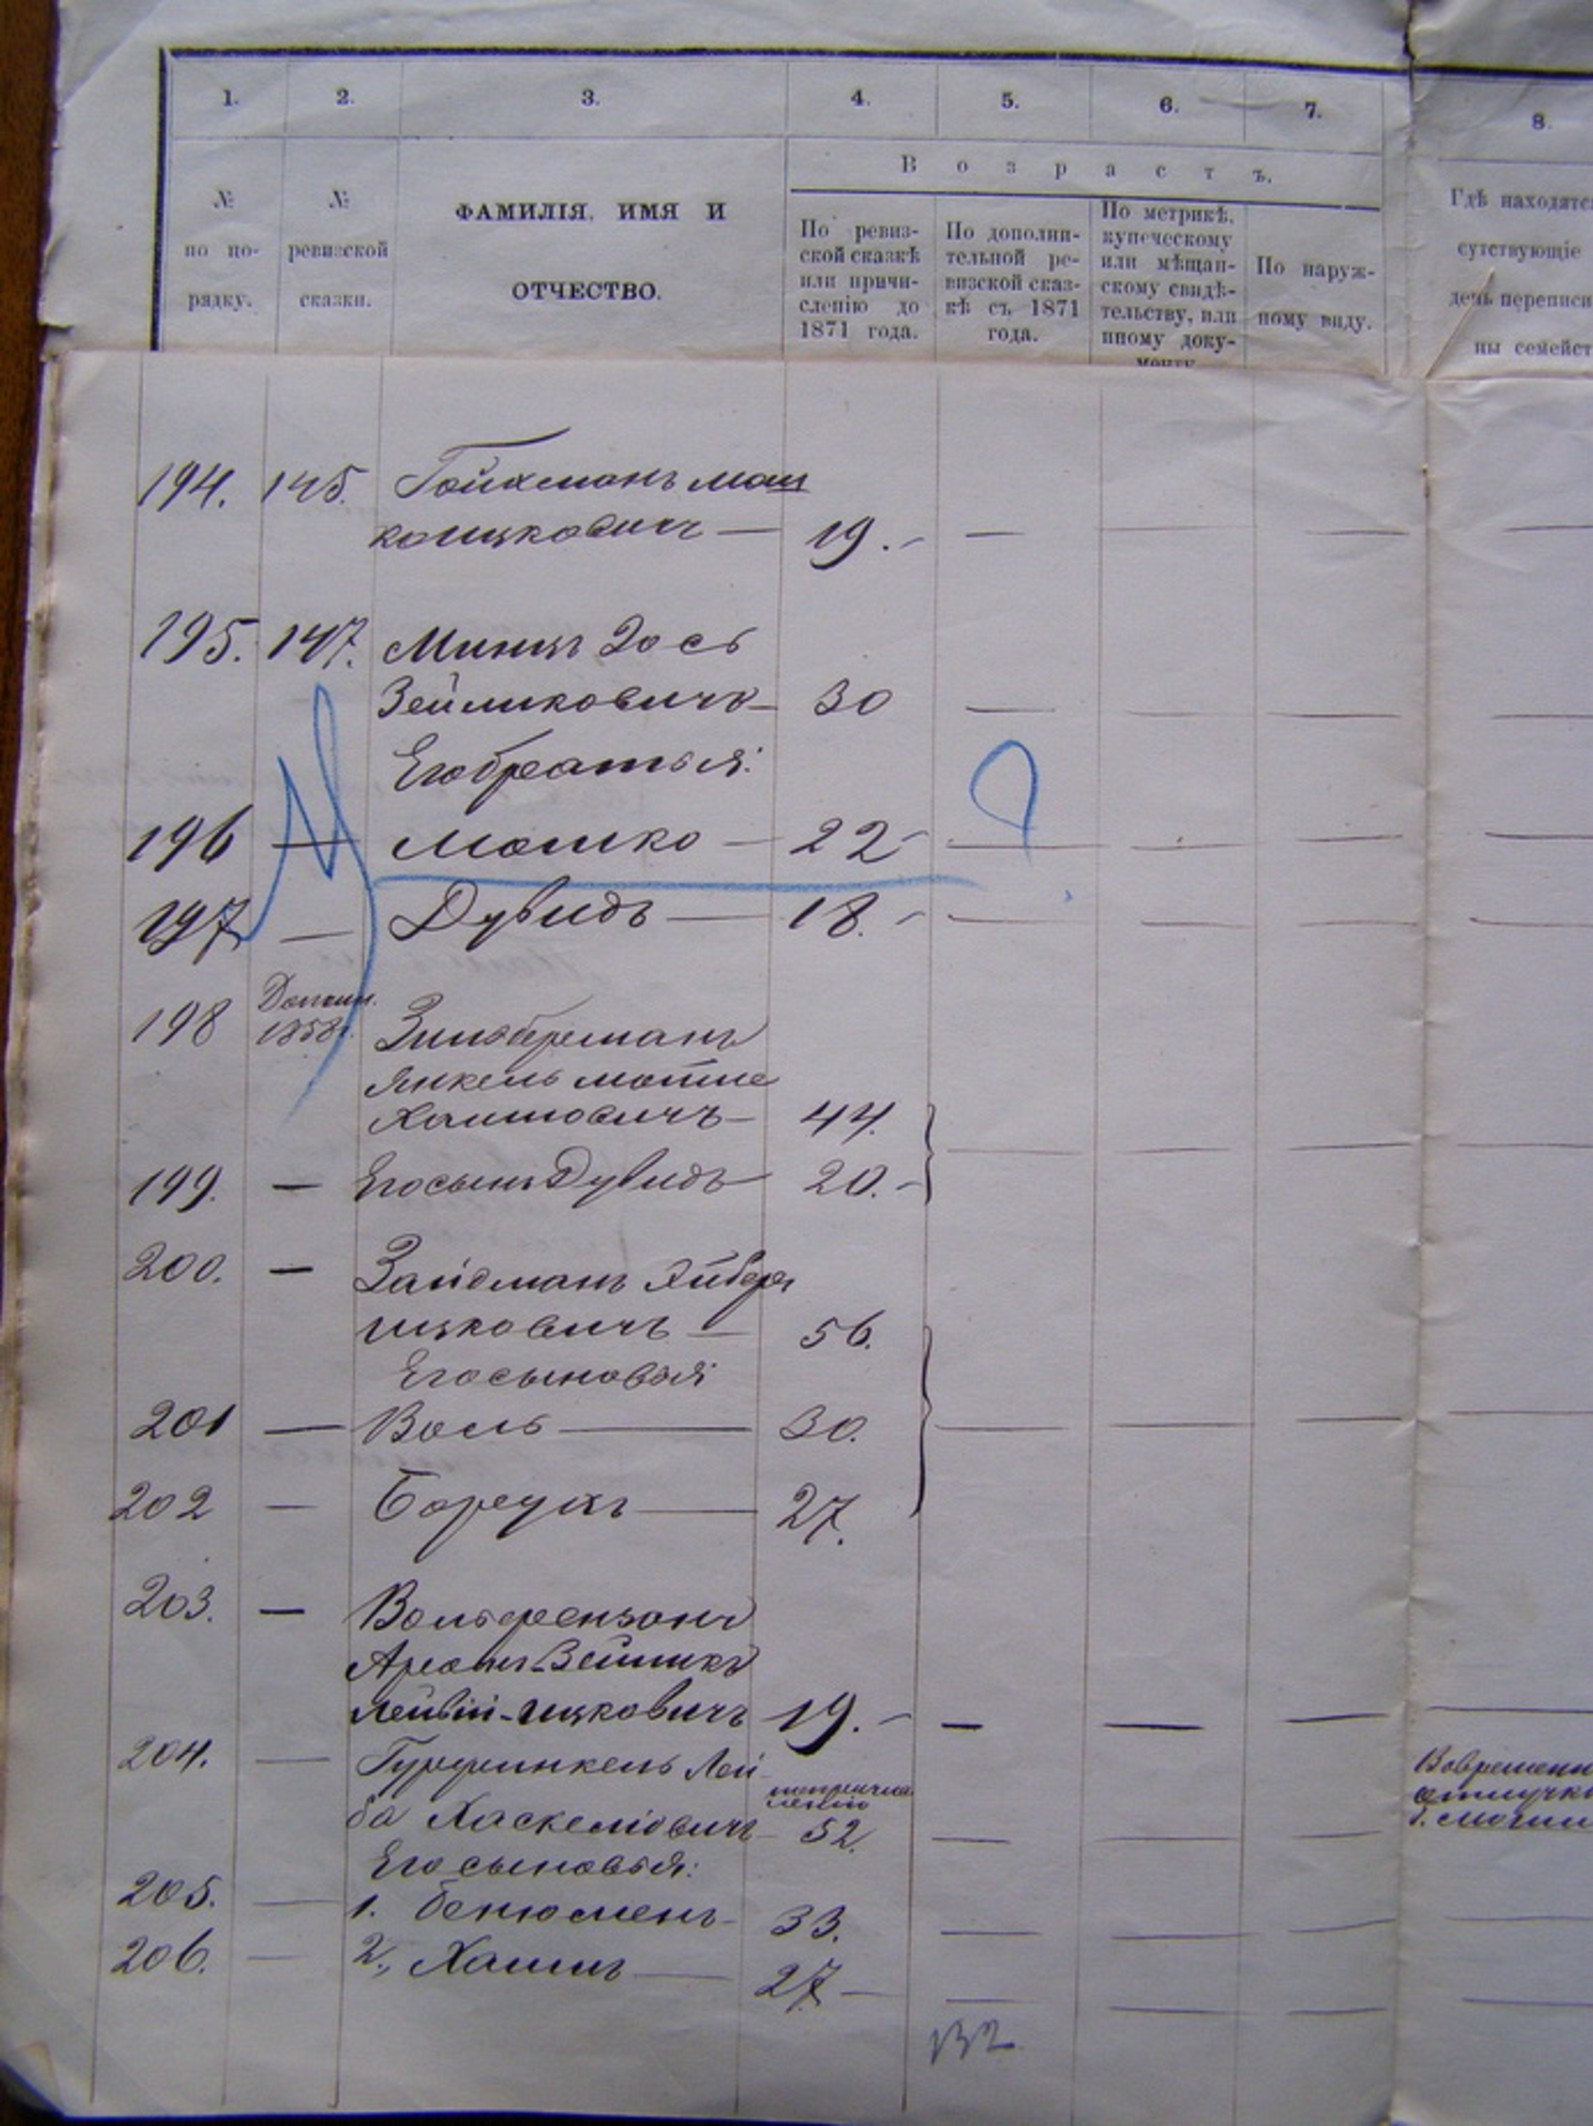 1. 2. 3. 4. 5. 6. 7. 8.
В о з р а с т ъ.
№ по по-
рядку.
№ ревизской
сказки.
ФАМИЛІЯ, ИМЯ И
ОТЧЕСТВО.
По ревиз-
ской сказкѣ
или причи-
сленію до
1871 года.
По дополни-
тельной ре-
визской сказ-
кѣ съ 1871
года.
По метрикѣ,
купеческому
или мѣщан-
скому свидѣ-
тельству, или
иному доку-
менту
По наруж-
ному виду.
Гдѣ находятс
сутствующіе
день переписи
ны семейст
194. 145. Гойхманъ Мош
ко Ицковичъ — 19. — —
195. 147. Минцъ Іось
Зейликовичъ — 30 —
Его братья:
196 — Мошко — 22 — —
197 — Дувидъ — 18. — —
198 Дополн.
1858г. Зильберманъ
Янкель Мотье
Хаимовичъ — 44.
199. — Его сынъ Дувидъ — 20. —
200. — Зайдманъ Лейберъ
Ицковичъ — 56.
Его сыновья:
201 — Воль — 30.
202 — Борухъ — 27.
203. — Вольфензонъ
Аронъ-Зеликъ
Лейвій-Ицковичъ 19. — —
204. — Гурфинкель Лей
ба Хаскелiовичъ — 52.
Его сыновья:
205. — 1. Бенюменъ — 33.
206. — 2., Хаимъ — 27 —
Вовременн
отлучкѣ
132